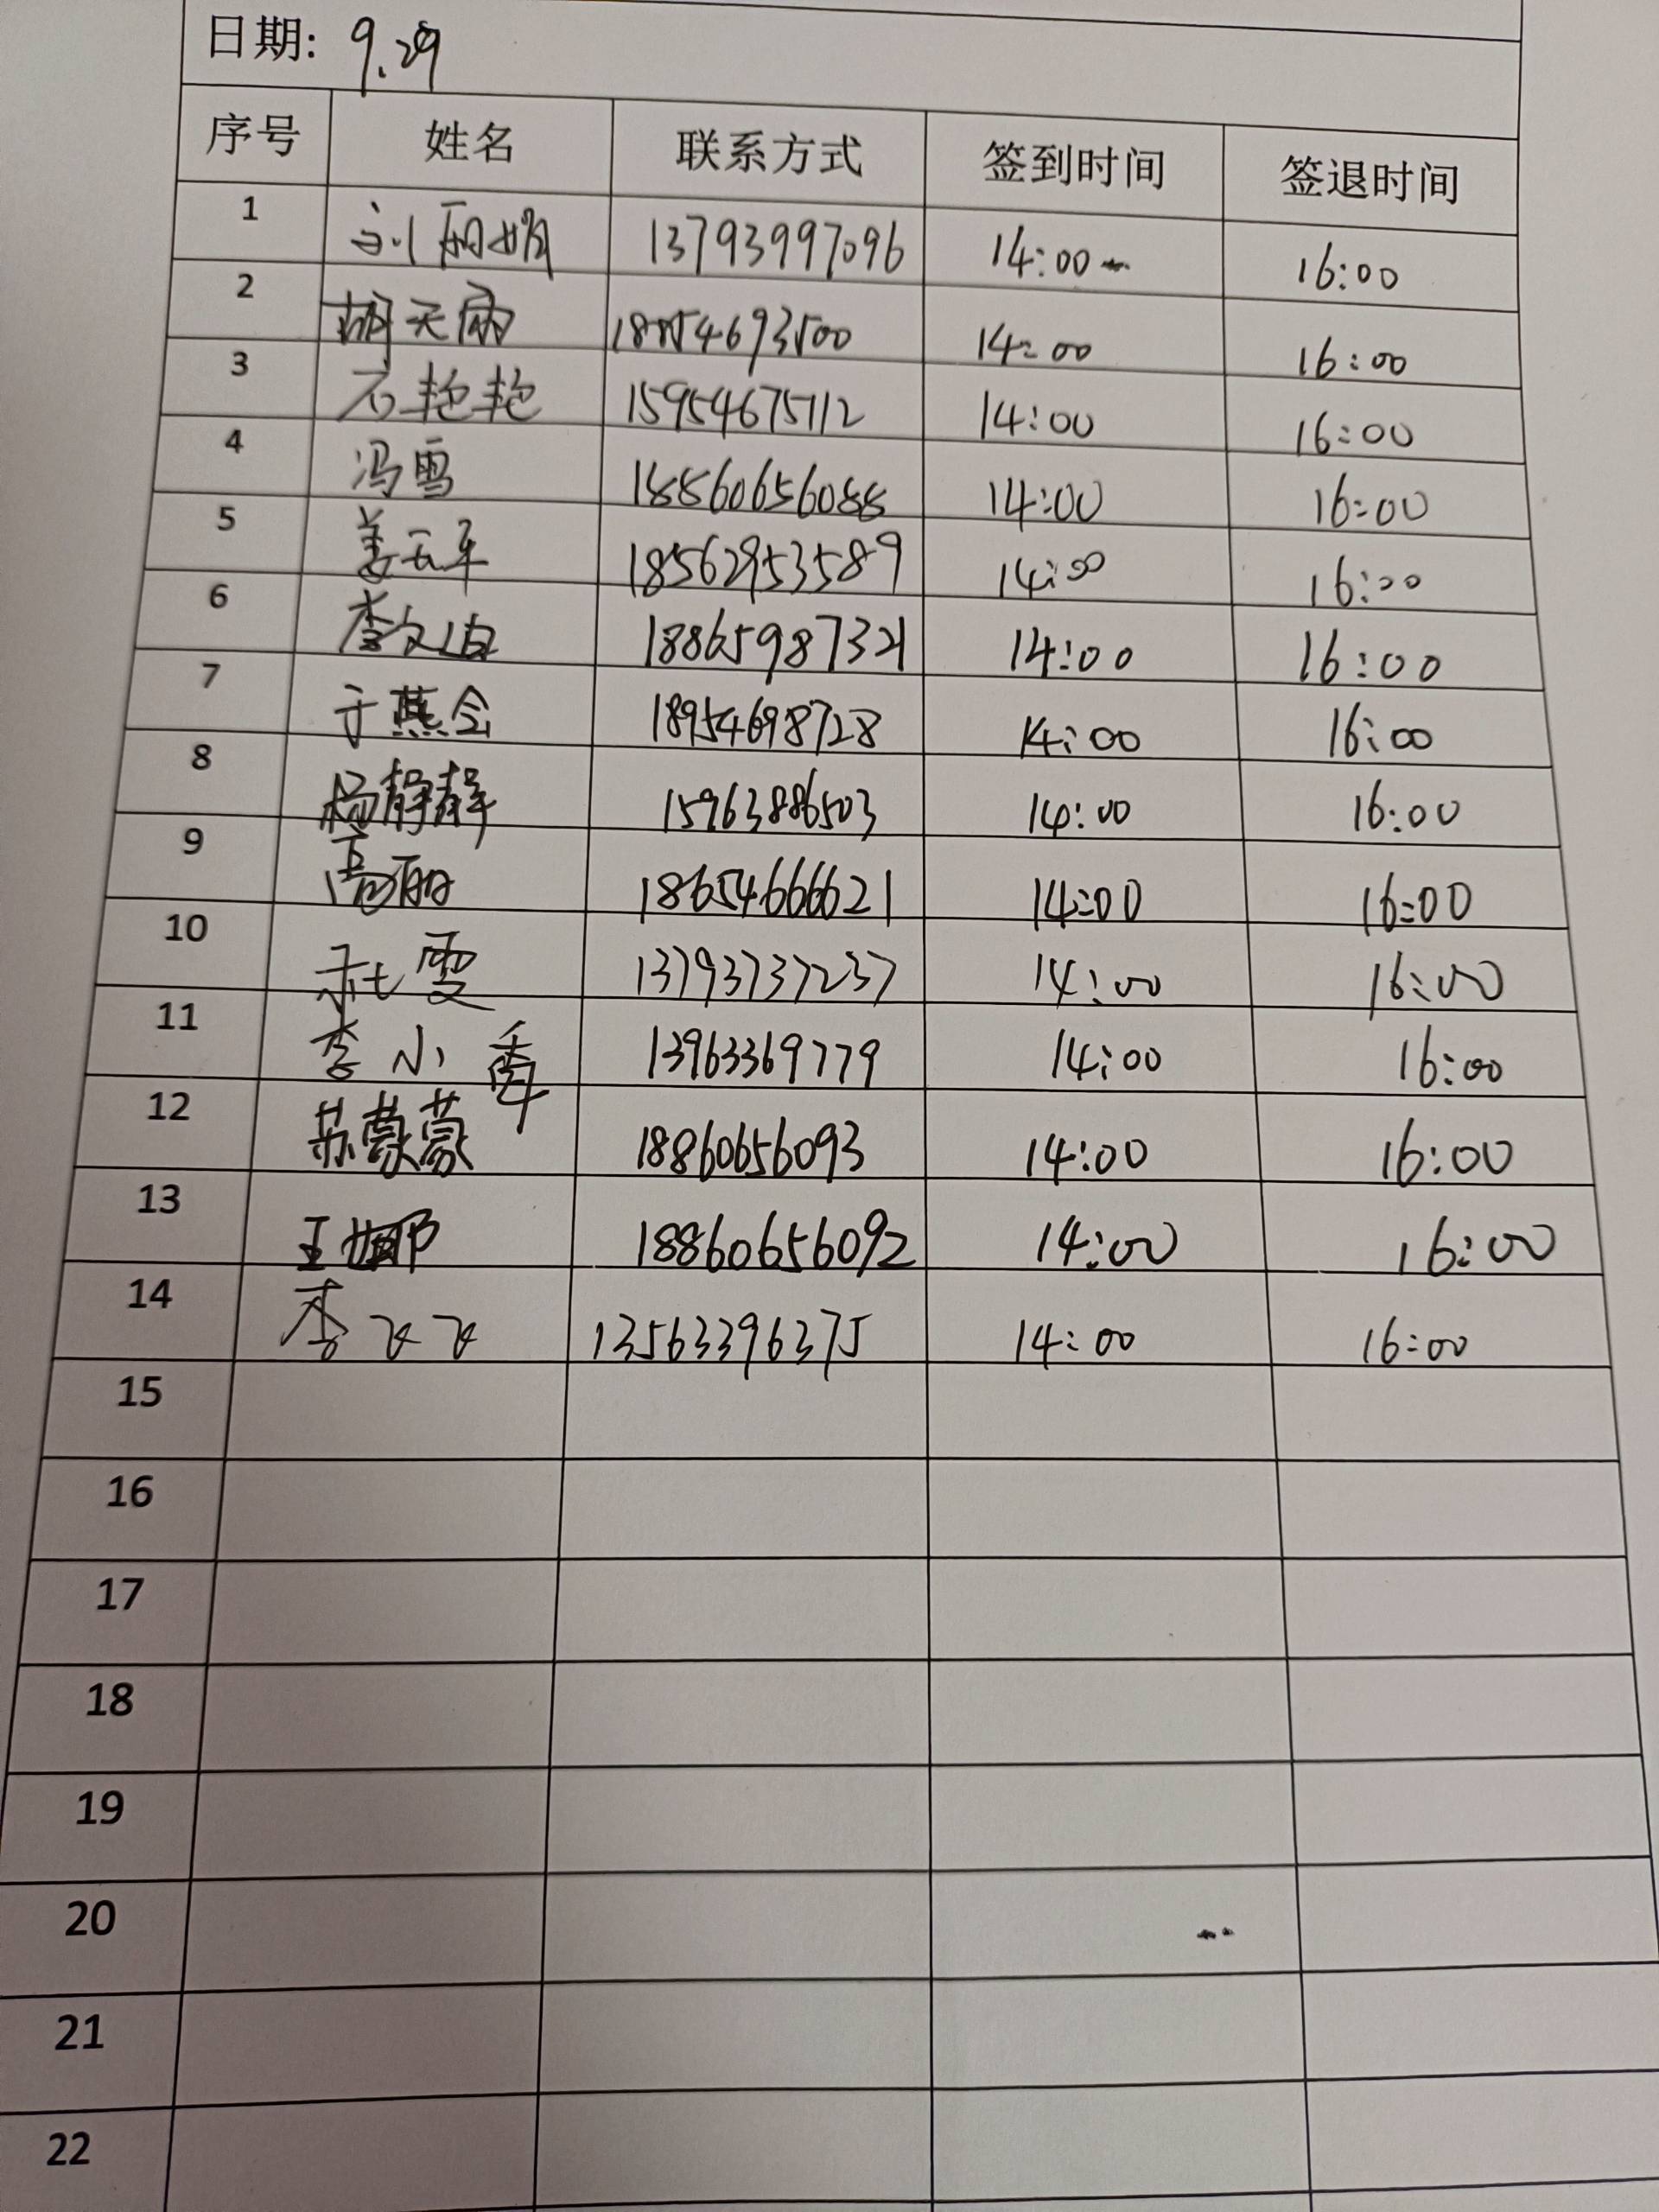 日期: 9.29
序号 姓名 联系方式 签到时间 签退时间
1 刘丽娟 13793997096 14:00 16:00
2 胡天雨 18854693500 14:00 16:00
3 石艳艳 15954675112 14:00 16:00
4 冯雪 18860656088 14:00 16:00
5 姜玉平 18562953589 14:00 16:00
6 李文 18865987321 14:00 16:00
7 于燕会 18954698728 14:00 16:00
8 杨静静 15963886503 14:00 16:00
9 高丽 18654666621 14:00 16:00
10 杜雯 13793737237 14:00 16:00
11 李小霞 13963369779 14:00 16:00
12 苏蒙蒙 18860656093 14:00 16:00
13 王娜 18860656092 14:00 16:00
14 李飞飞 13563396375 14:00 16:00
15
16
17
18
19
20
21
22